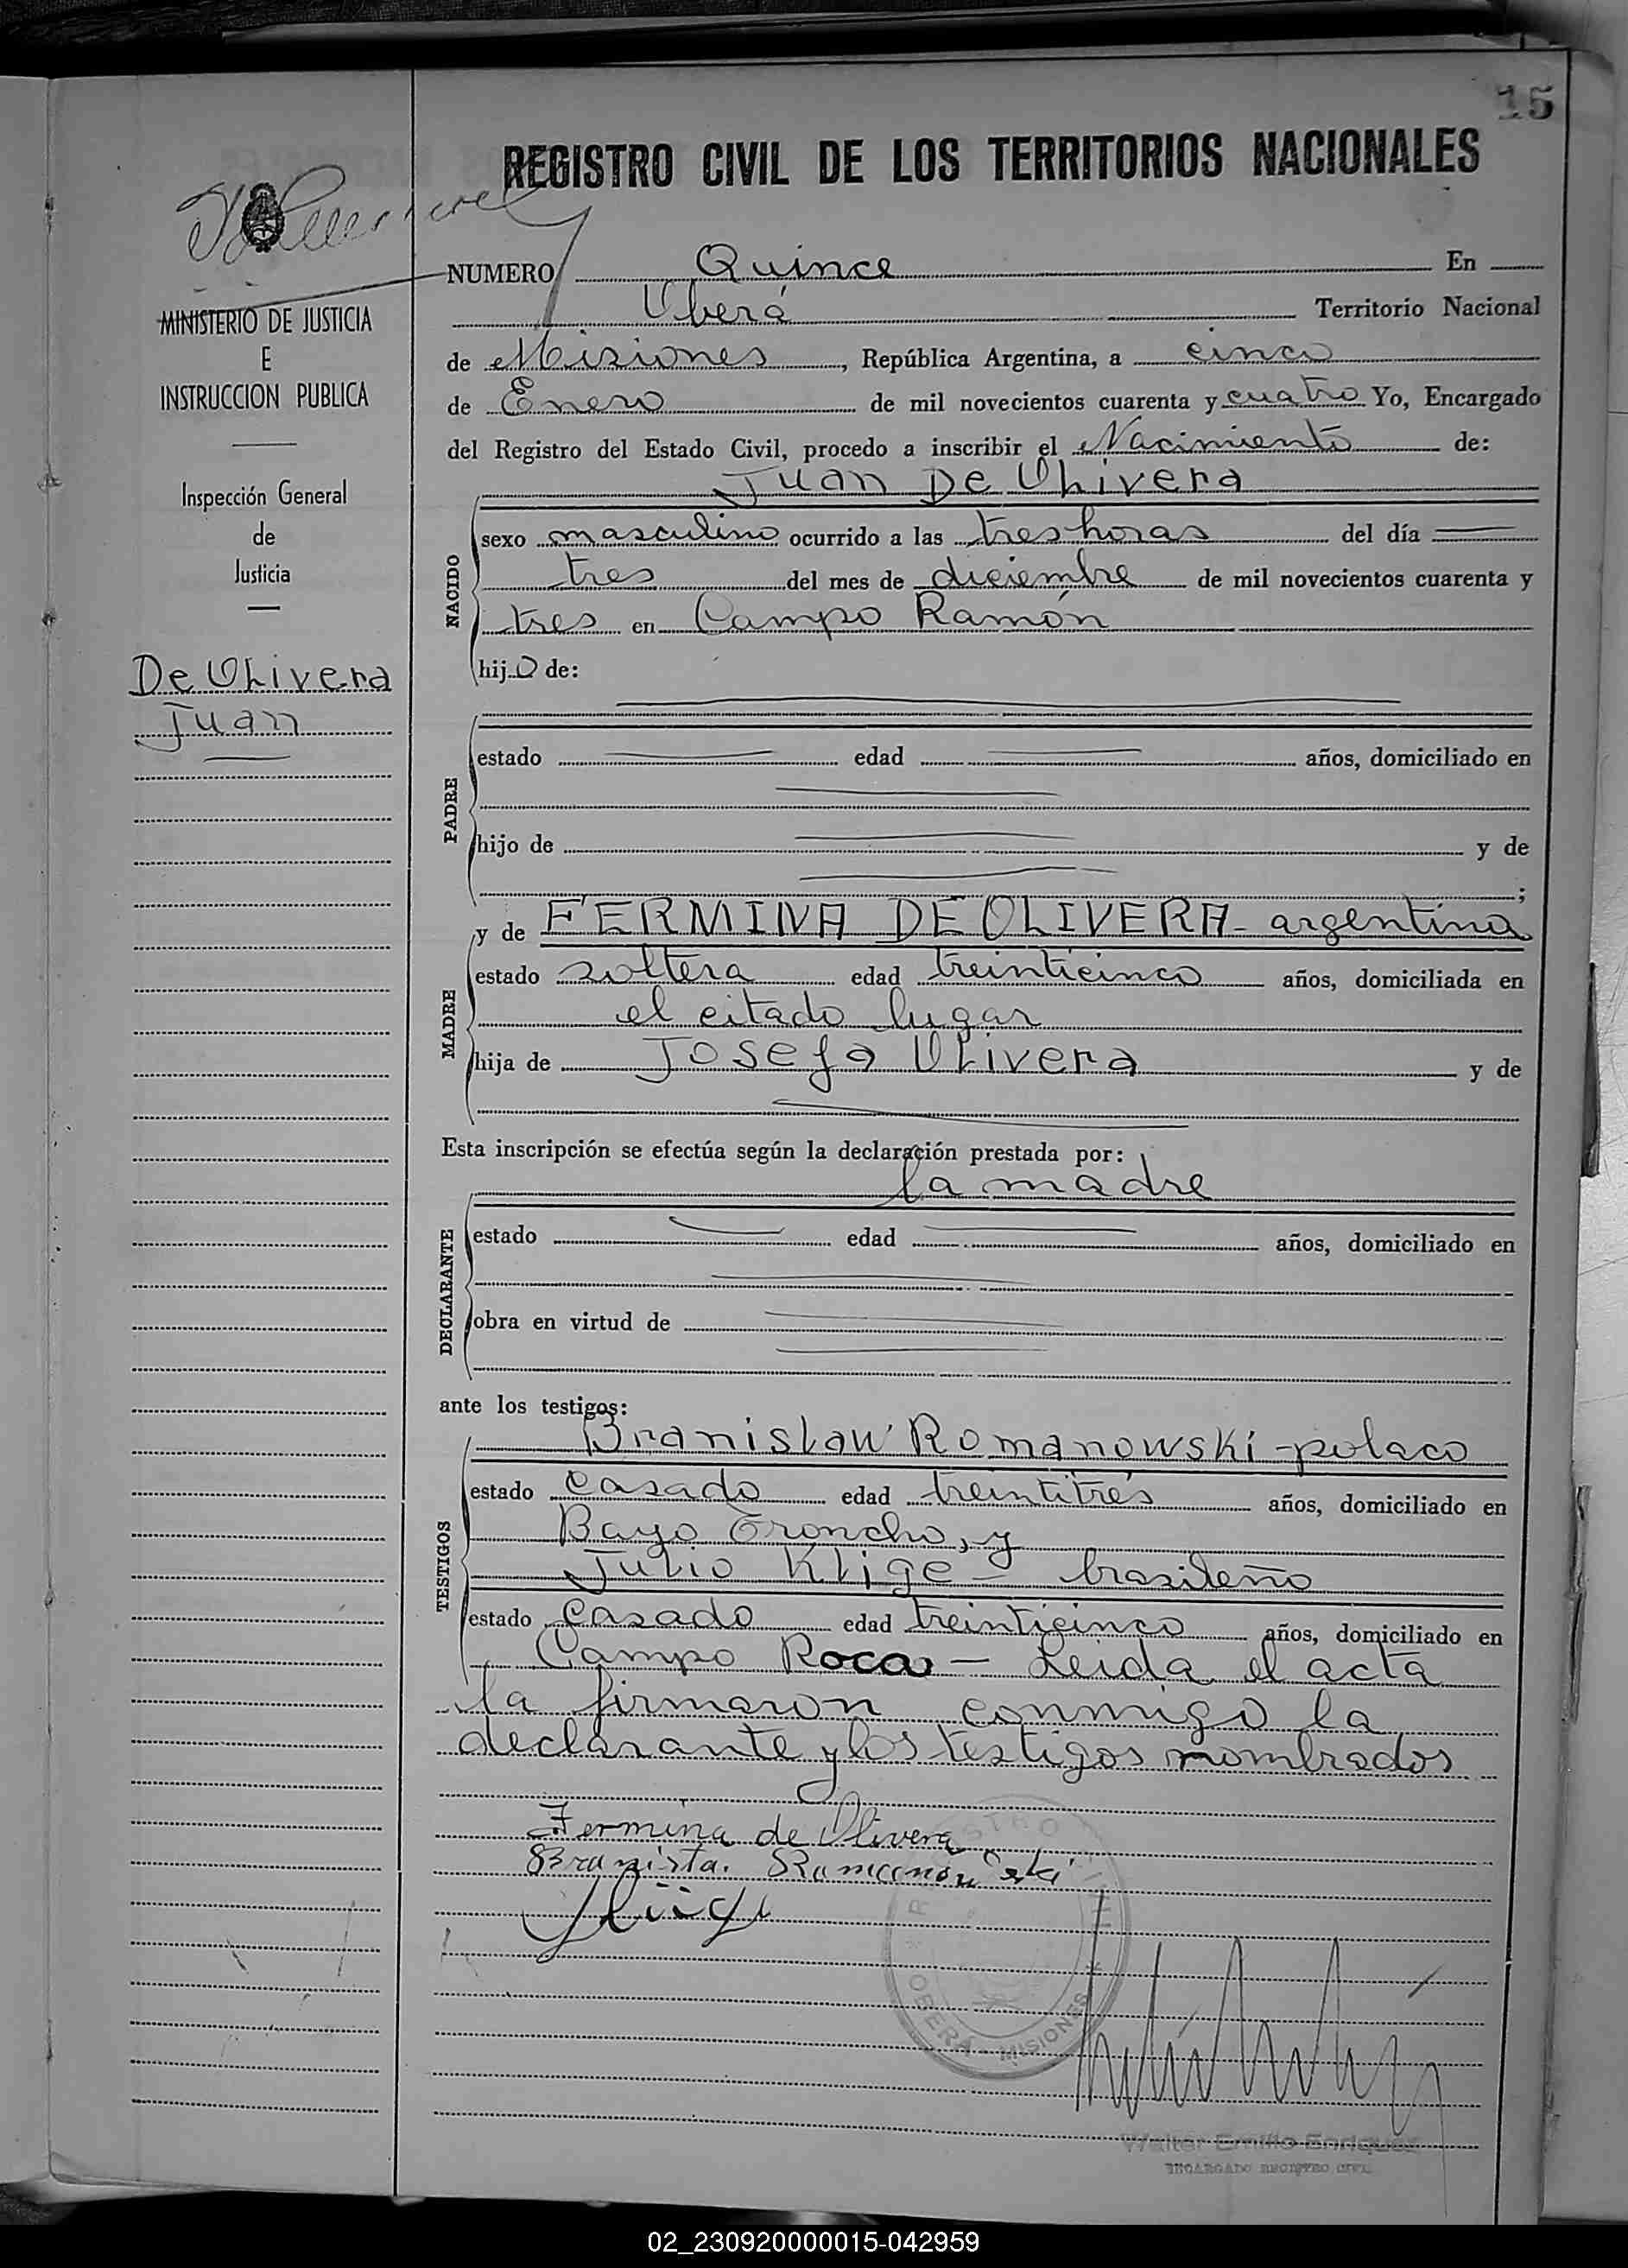 15
REGISTRO CIVIL DE LOS TERRITORIOS NACIONALES
NUMERO Quince En
Oberá Territorio Nacional
de Misiones, República Argentina, a cinco
de Enero de mil novecientos cuarenta y cuatro Yo, Encargado
del Registro del Estado Civil, procedo a inscribir el Nacimiento de:
Juan De Olivera
NACIDO
sexo masculino ocurrido a las tres horas del día
tres del mes de diciembre de mil novecientos cuarenta y
tres en Campo Ramón
hijo de:
PADRE
estado edad años, domiciliado en
hijo de y de
;
y de FERMINA DE OLIVERA - argentina
MADRE
estado soltera edad treinticinco años, domiciliada en
el citado lugar
hija de Josefa Olivera y de
Esta inscripción se efectúa según la declaración prestada por:
la madre
DECLARANTE
estado edad años, domiciliado en
obra en virtud de
ante los testigos:
TESTIGOS
Branislaw Romanowski - polaco
estado casado edad treintitrés años, domiciliado en
Bayo Troncho, y
Julio Klige - brasileño
estado casado edad treinticinco años, domiciliado en
Campo Roca - Leida el acta
la firmaron conmigo la
declarante y los testigos nombrados
Fermina de Olivera
REGISTRO CIVIL
OBERÁ - MISIONES
Walter Emilio Enriquez
ENCARGADO REGISTRO CIVIL
MINISTERIO DE JUSTICIA
E
INSTRUCCION PUBLICA
Inspección General
de
Justicia
De Olivera
Juan
02_230920000015-042959